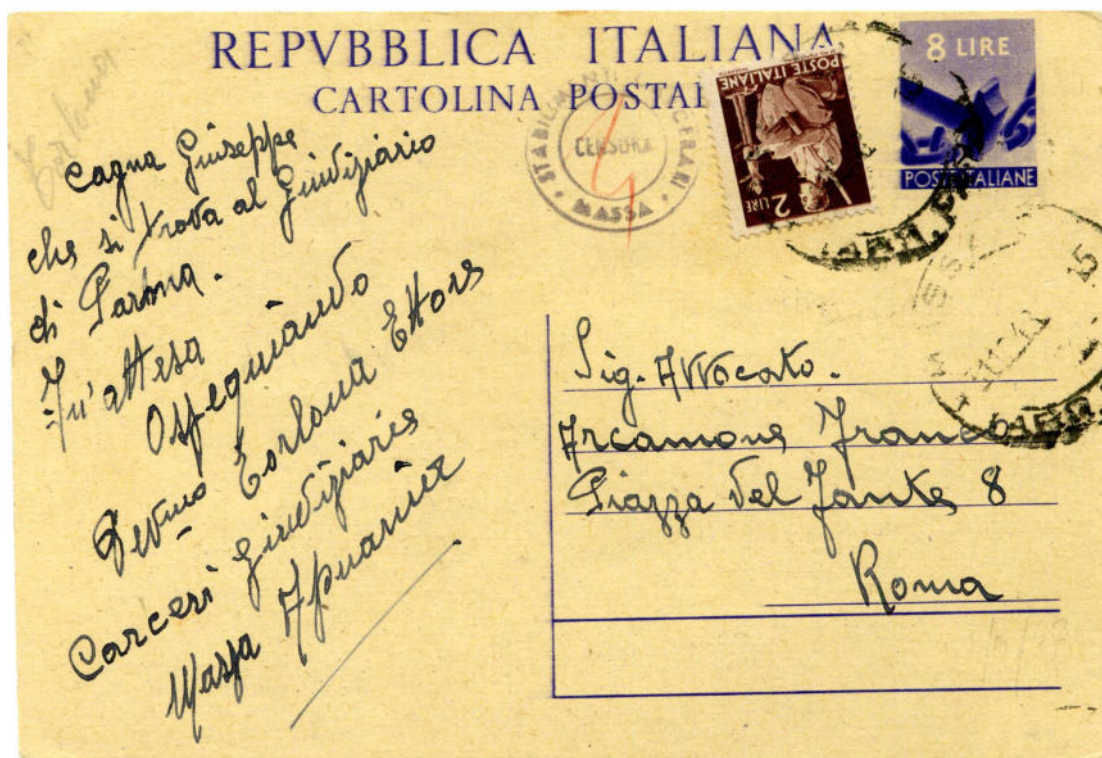 REPVBBLICA ITALIANA
CARTOLINA POSTAL
8 LIRE
POSTE ITALIANE
POSTE ITALIANE
2 LIRE
STABILIMENTI CARCERARI
CENSURA
MASSA
Cagna Giuseppe
che si trova al Giudiziario
di Parma.
In'attesa
Ossequiando
Dev.mo Torlona Ettore
Carceri giudiziarie
Massa Apuania
Sig. Avvocato.
Arcamone Franco
Piazza del Fante 8
Roma